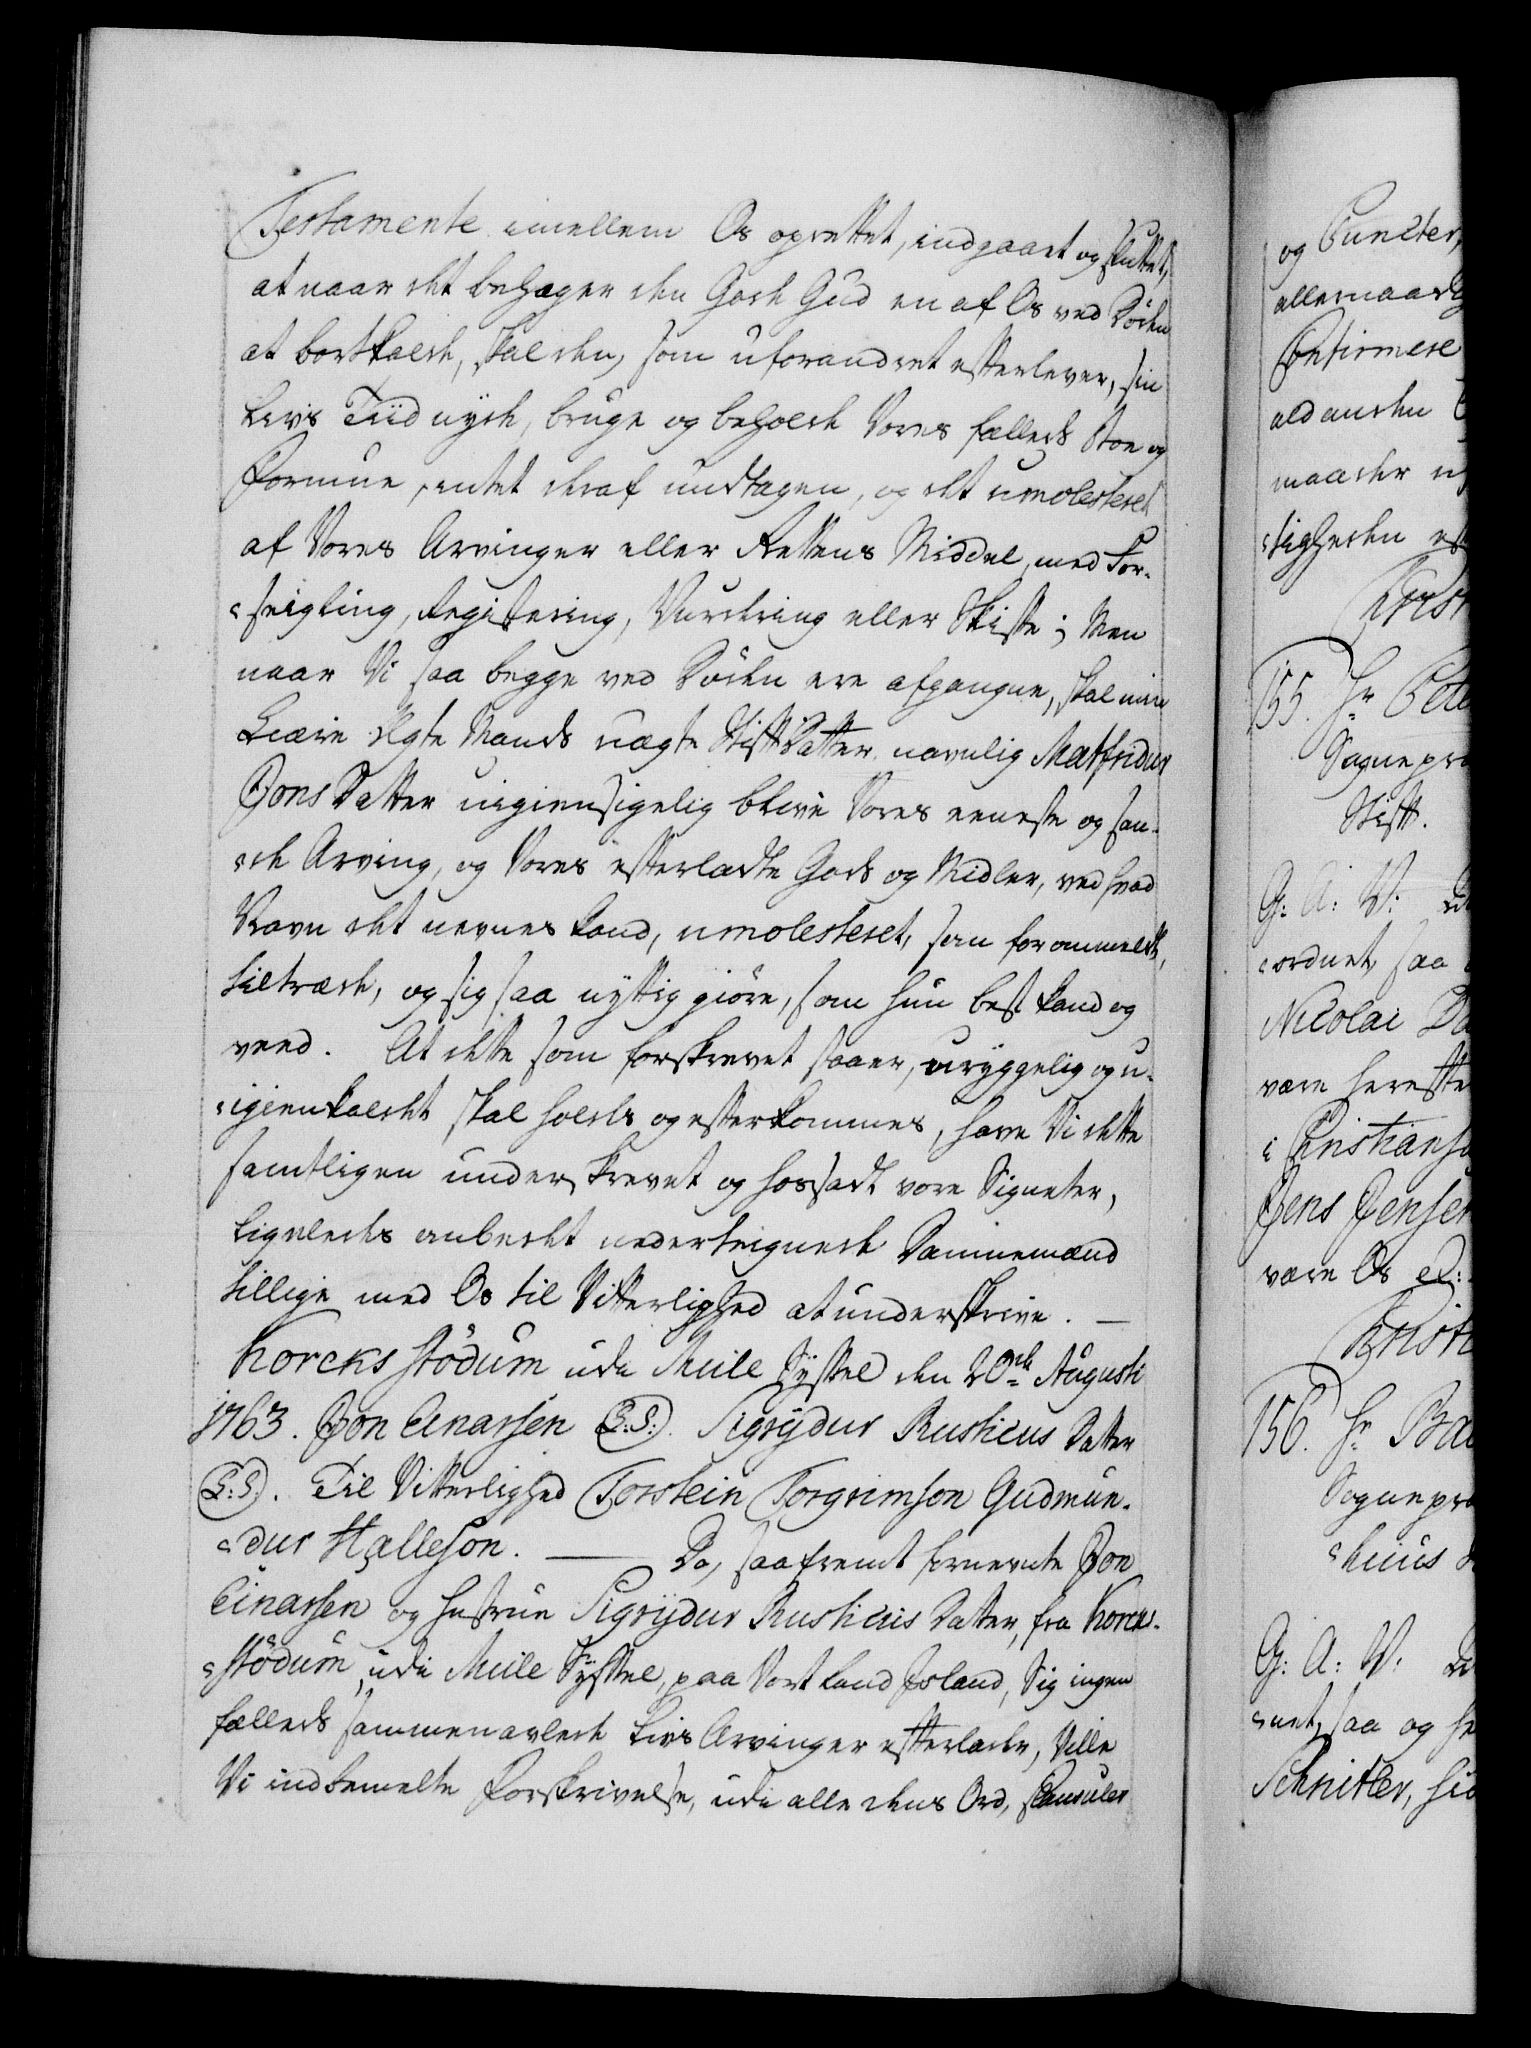 Testamente imellem Os oprettet, indgaaet og sluttet,
at naar det behager den Gode Gud en af Os ved Döden
at bortkalde, skal den, som uforandret efterlever, sin
Livs Tiid nyde, bruge og beholde Vores fælleds Boe og
Formue, intet deraf undtagen, og det umolesteret
af Vores Arvinger eller Rettens Middel, med For-
seigling, Registering, Vurdering eller Skifte; Men
naar Vi saa begge ved Döden ere afgangne, skal min
kiære Egte Mands uægte Stifdatter navnlig Matfridur
Jons Datter uigiensigelig blive Vores eeneste og san-
de Arving, og Vores efterladte Gods og Midler, ved hvad
Navn det nevnes kand, umolesteret, som forommeldte,
tiltræde, og sig saa nyttig giöre, som hun best kand og
veed. At dette som forskrevet staaer, uryggelig og u-
igienkaldet skal holdes og efterkommes, have Vi dette
samtligen underskrevet og hossadt vore Signeter,
ligeledes anbedet nedertegnede Dannemænd
tillige med Os til Vitterlighed at underskrive. —
Korekstödum udi Mule Syssel den 20de Augusti
1763. Jon Einarsen (L:S:). Sigrydur Rusticus Datter
(L:S:). Til Vitterlighed Torstein Torgrimson Gudmun-
dur Halleson. — Da, saafremt fornevnte Jon
Einarsen og Hustrue Sigrydur Rusticus Datter, fra Korek-
stödum, udi Mule Syssel, paa Vort Land Island, Sig ingen
fælleds sammenavlede Livs Arvinger efterlader, Ville
Vi indbemelte Forskrivelse, udi alle dens Ord, Clausuler
og Puncter,
allernaad
Confirmere
ald anden
maader
tigheden
Christ
155. Hr Pete
Sognepræ
Stift.
G: A: V:
ordnet, saa
Nicolai Da
være herefter
i Christiansa
Jens Jensen
være Os
Christ
156. Hr
Sognepræ
huus
G: A: V:
net, saa og he
Schnitler, hid